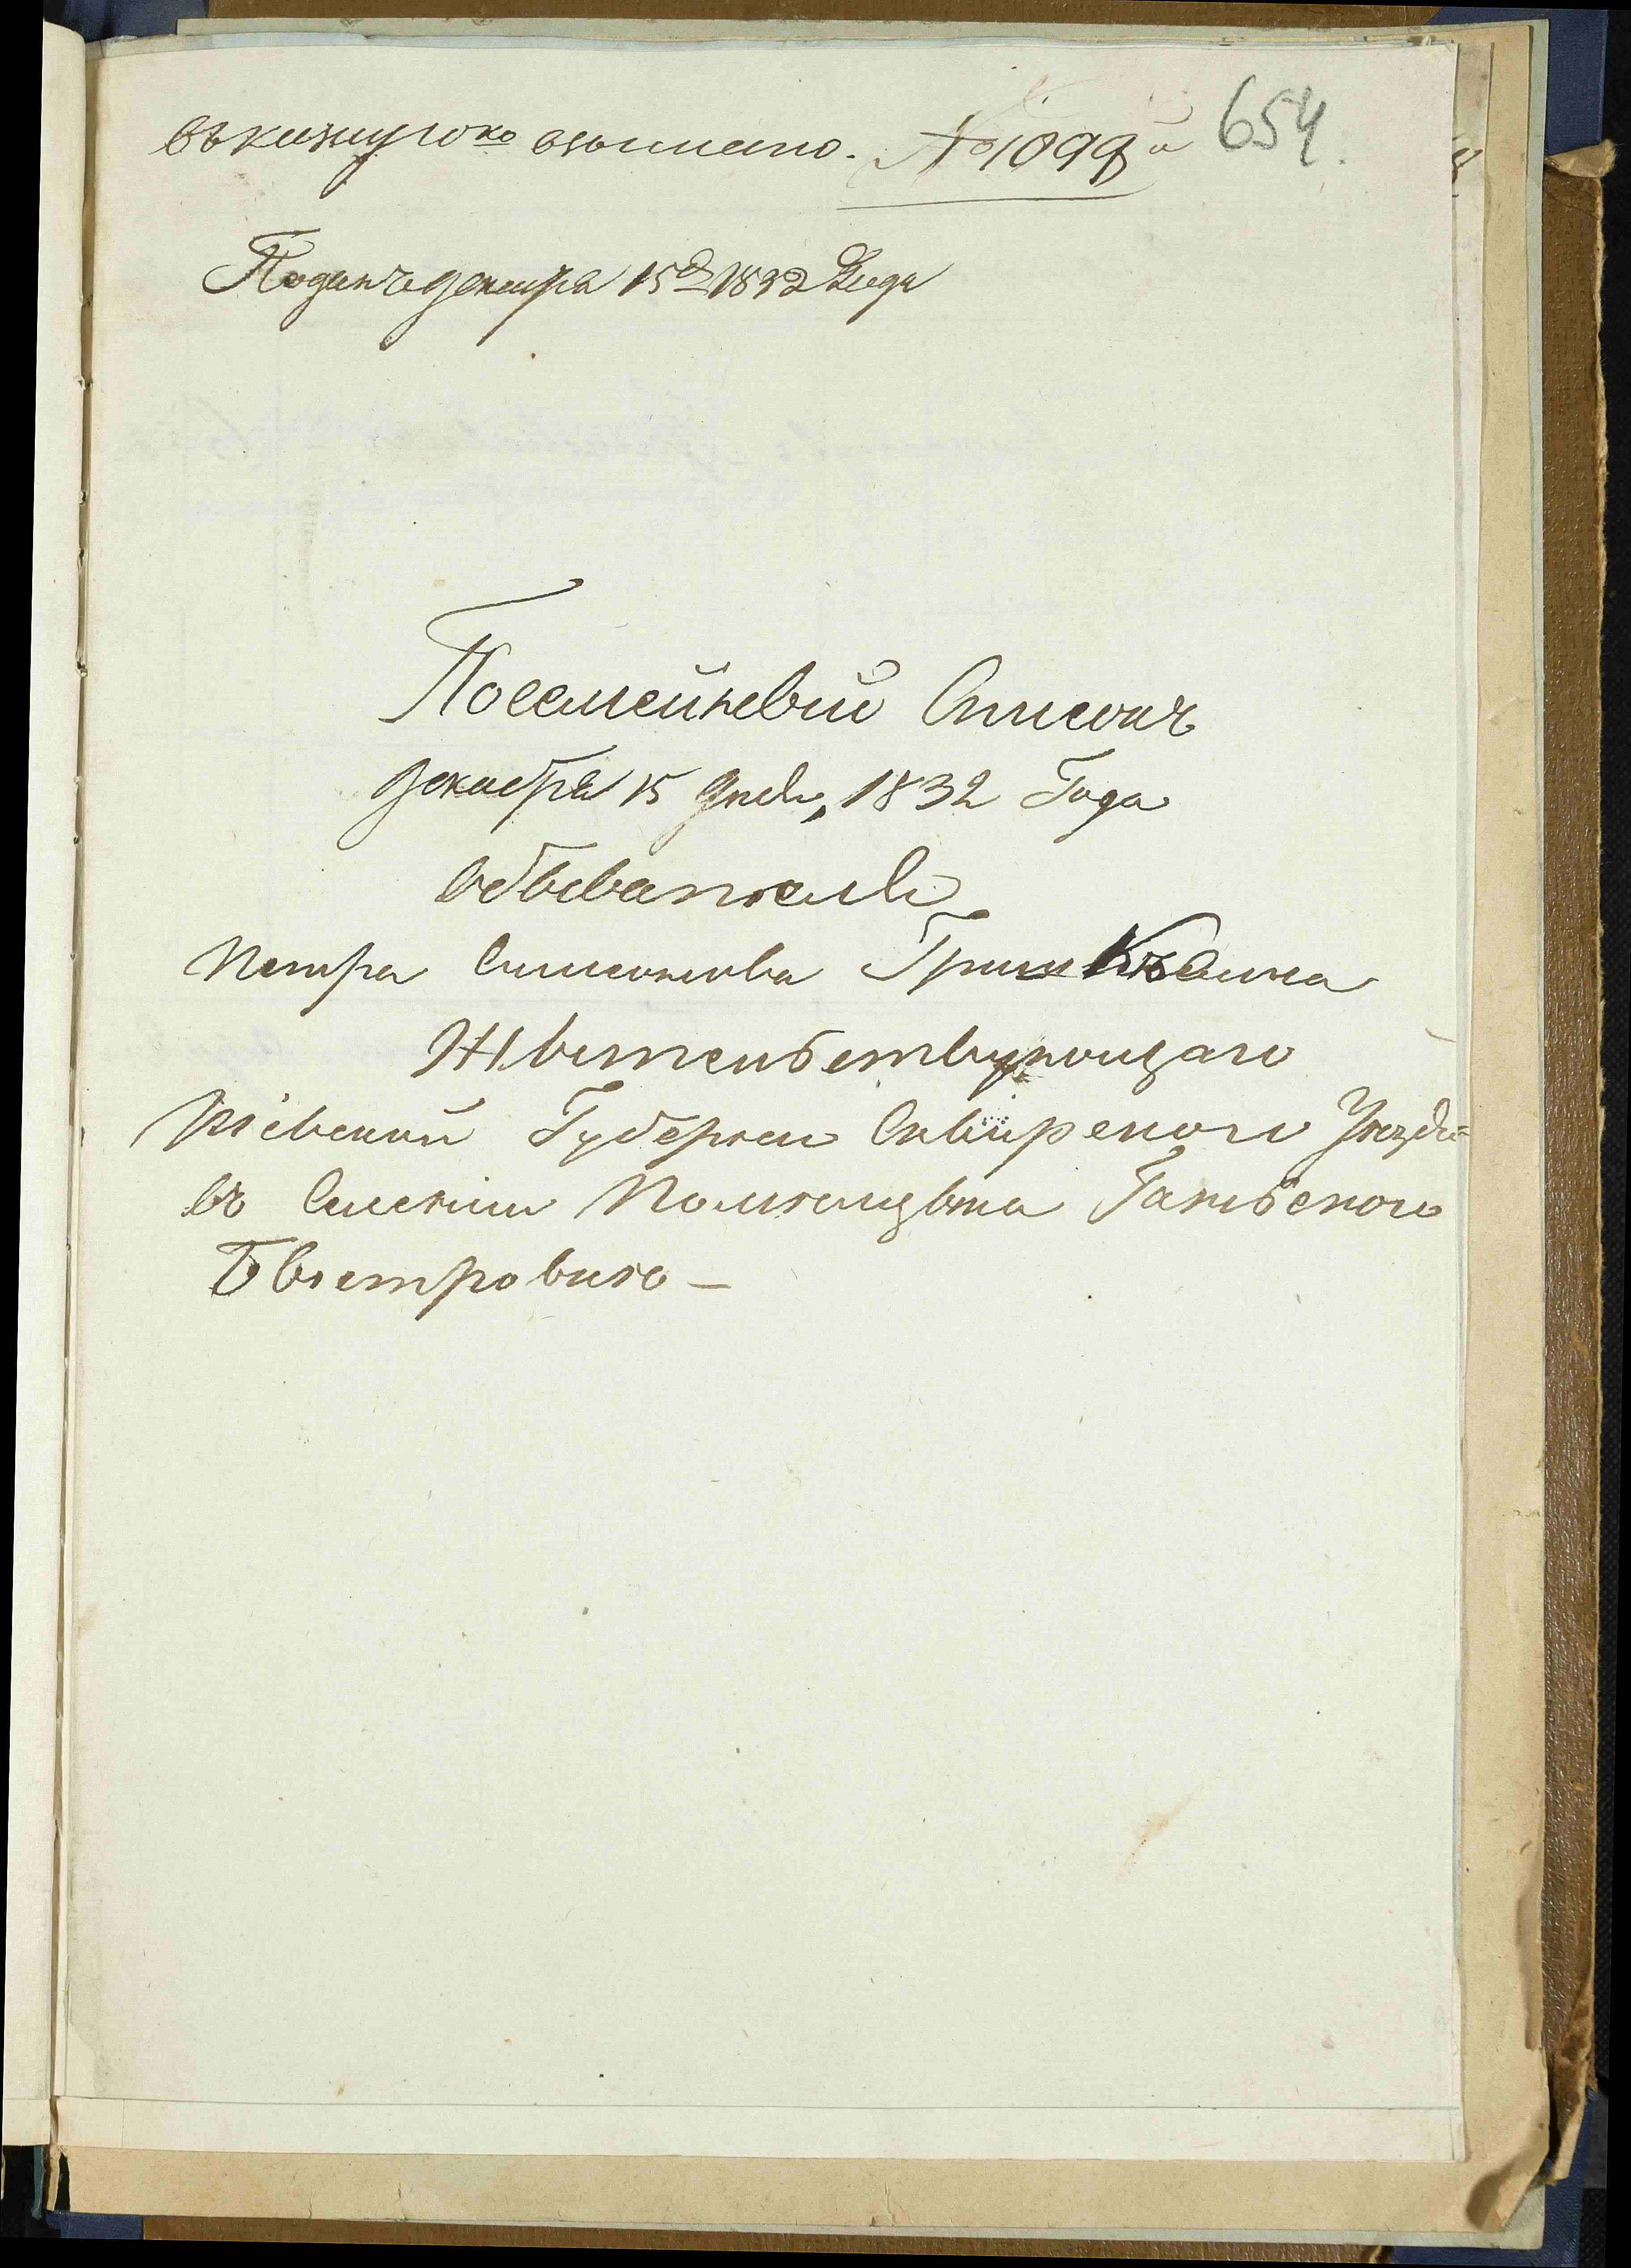 въ книгу вписано. № 1099й 654.
Поданъ декабра 15д 1832 Года
Посемейный Списокъ
декабря 15 дня, 1832 Года
обывателя
Петра Симеонова
Жительствующаго
Кіевской Губерніи Сквирского Уезда
въ Селенїи Помѣщика
Быстровике —